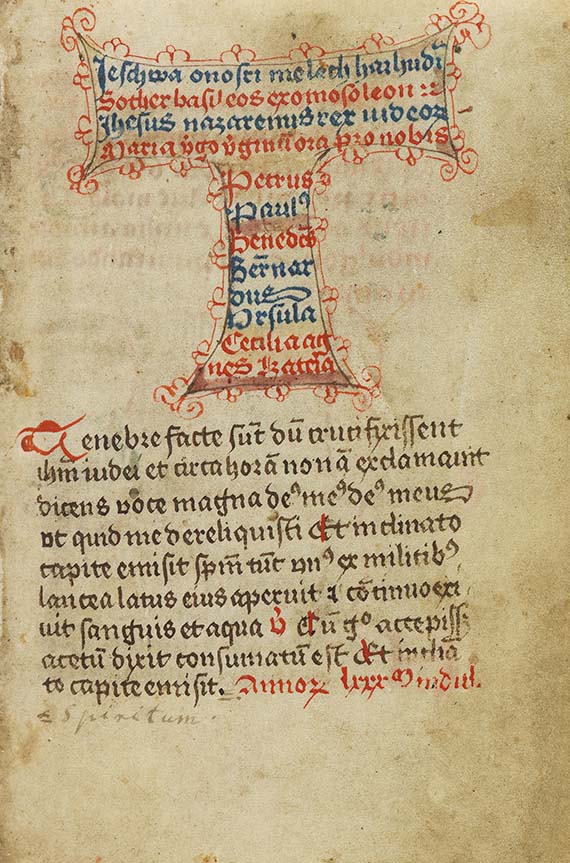 Jeschwa onosri melech haihudī
Sother basileos exomosoleon
Jhesus nazarenus rex iudeoꝝ
Maria v̄go v̄ginū ora pro nobis
Petrus
Paulꝰ
Benedcs̄
Bern̄ar
dus
Vrsula
Cecilia ag
nes Katelā
Tenebre facte sūt dū crucifixissent
ihm̄ iudei et circa horā nonā exclamauit
dicens voce magna deꝰ meꝰ deꝰ meus
vt quid me dereliquisti Et inclinato
capite emisit spm̄ tūc vnꝰ ex militibꝰ
lancea latus eius aperuit ⁊ cōtinuo exi
uit sanguis et aqua v̄ Cū gº accepiss
acetū dixit consumatū est Et inclīa
to capite emisit. Annoꝝ lxxxᵐ indul.
spiritum.